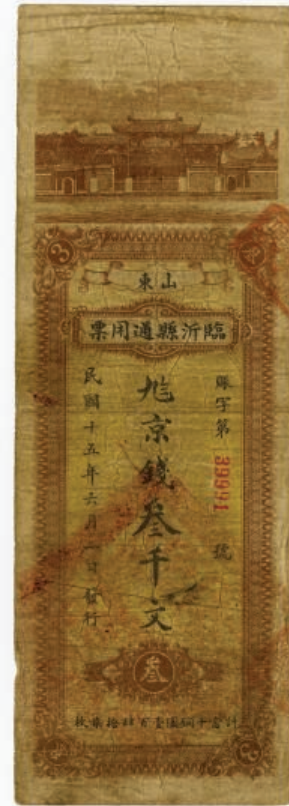 3
山東
臨沂縣通用票
賑字第39991號
凭京錢叁千文
民國十五年六月一日發行
叁